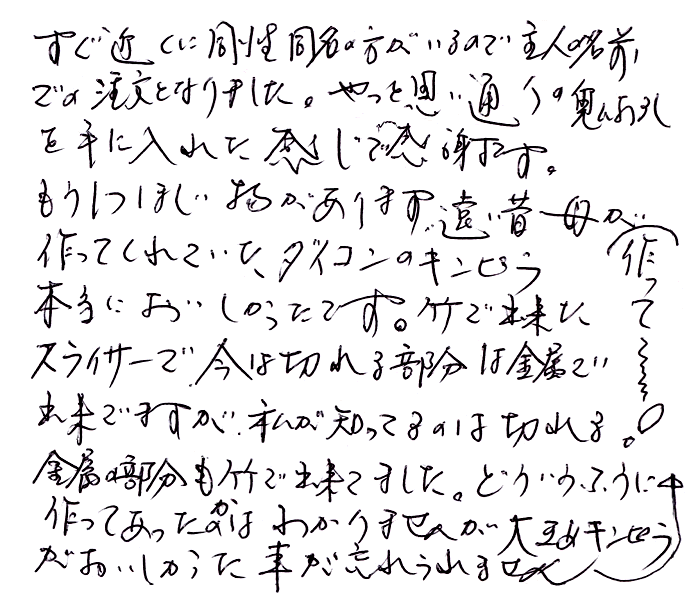 すぐ近くに同性同名の方がいるので主人の名前
での注文となりました。やっと思い通りの鬼おろし
を手に入れた感じで感謝です。
もう1つほしい物があります。遠い昔母が
作ってくれていた、ダイコンのキンピラ
本当においしかったです。竹で出来た
スライサーで今は切れる部分は金属で
出来てますが、私が知ってるのは切れる
金属の部分も竹で出来てました。どういうふうに
作ってあったのかはわかりませんが大根キンピラ
がおいしかった事が忘れられません
作って